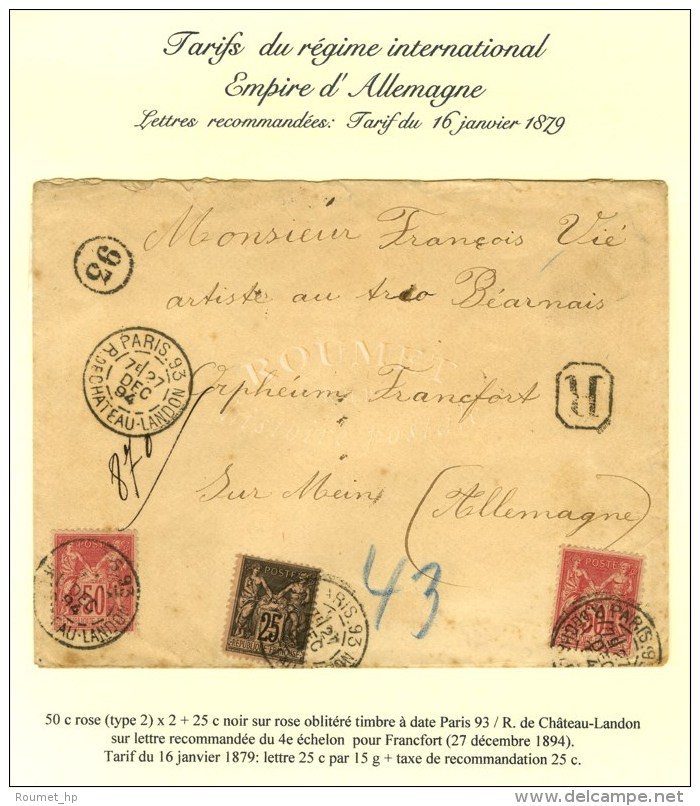 Tarifs du régime international
Empire d'Allemagne
Lettres recommandées: Tarif du 16 janvier 1879
Monsieur François Vié
93
artiste au trio Béarnais
PARIS_93
7E 27
DEC
94
R. DE CHATEAU-LANDON
ROUMET
Orpheum Francfort
R
870
Sur Mein (Allemagne)
POSTE
50
93
DEC
94
EAU-LANDON
POSTE
25
PARIS_93
7E 27
DEC
43
PARIS_93
50 c rose (type 2) x 2 + 25 c noir sur rose oblitéré timbre à date Paris 93 / R. de Château-Landon
sur lettre recommandée du 4e échelon pour Francfort (27 décembre 1894).
Tarif du 16 janvier 1879: lettre 25 c par 15 g + taxe de recommandation 25 c.
© Roumet_hp